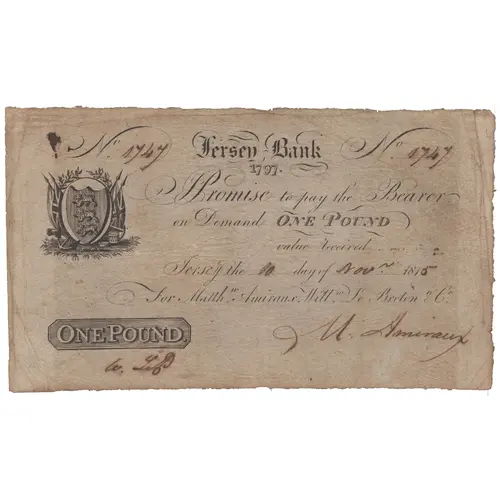 No 1747 Jersey Bank No 1747
1797.
I Promise to pay the Bearer
on Demand ONE POUND
value received
Jersey the 10 day of Novr. 1815
For Matthw. Amiraux, Willm. Le Breton & Co.
ONE POUND.
M. Amiraux